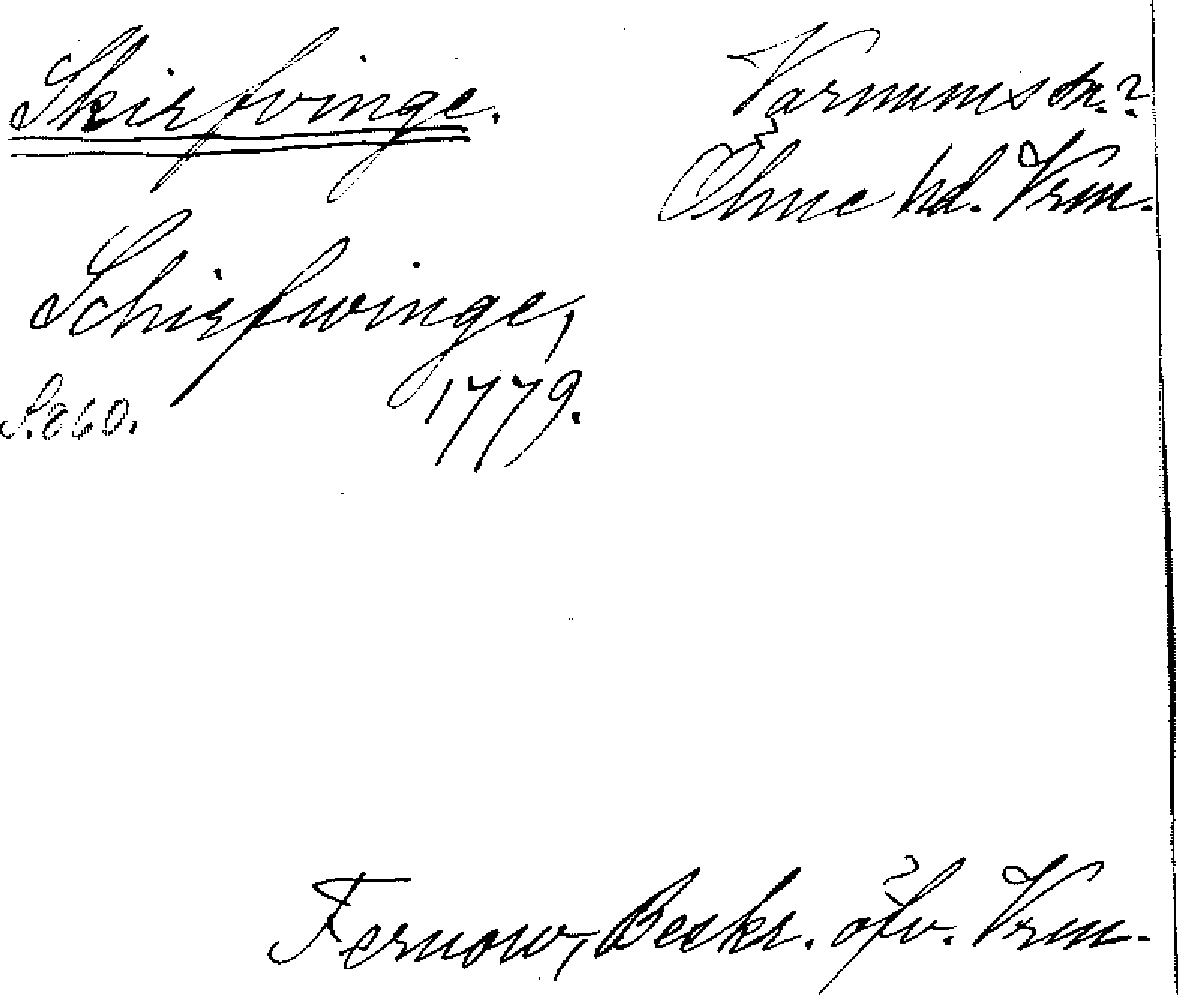 Skirfvinge.
Varnums sn.?
Ölme hd. Vrm.
Schirfwinge,
S. 860. 1779.
Fernow, Beskr. öfv. Vrm.